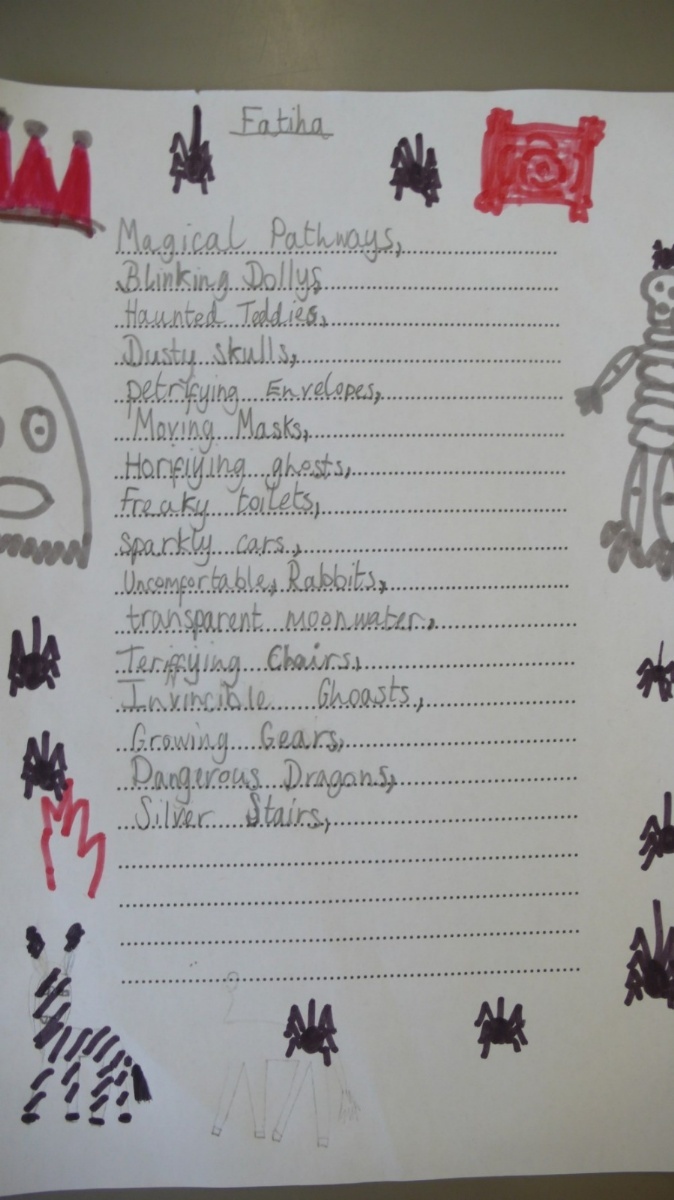 Fatiha
Magical Pathways,
Blinking Dollys
Haunted Teddies,
Dusty skulls,
petrifying Envelopes,
Moving Masks,
Horifiying ghosts,
freaky toilets,
sparkly cars,
Uncomfortable, Rabbits,
transparent moonwater,
Teriffying Chairs,
Invincible Ghoasts,
Growing Gears,
Dangerous Dragons,
Silver Stairs,